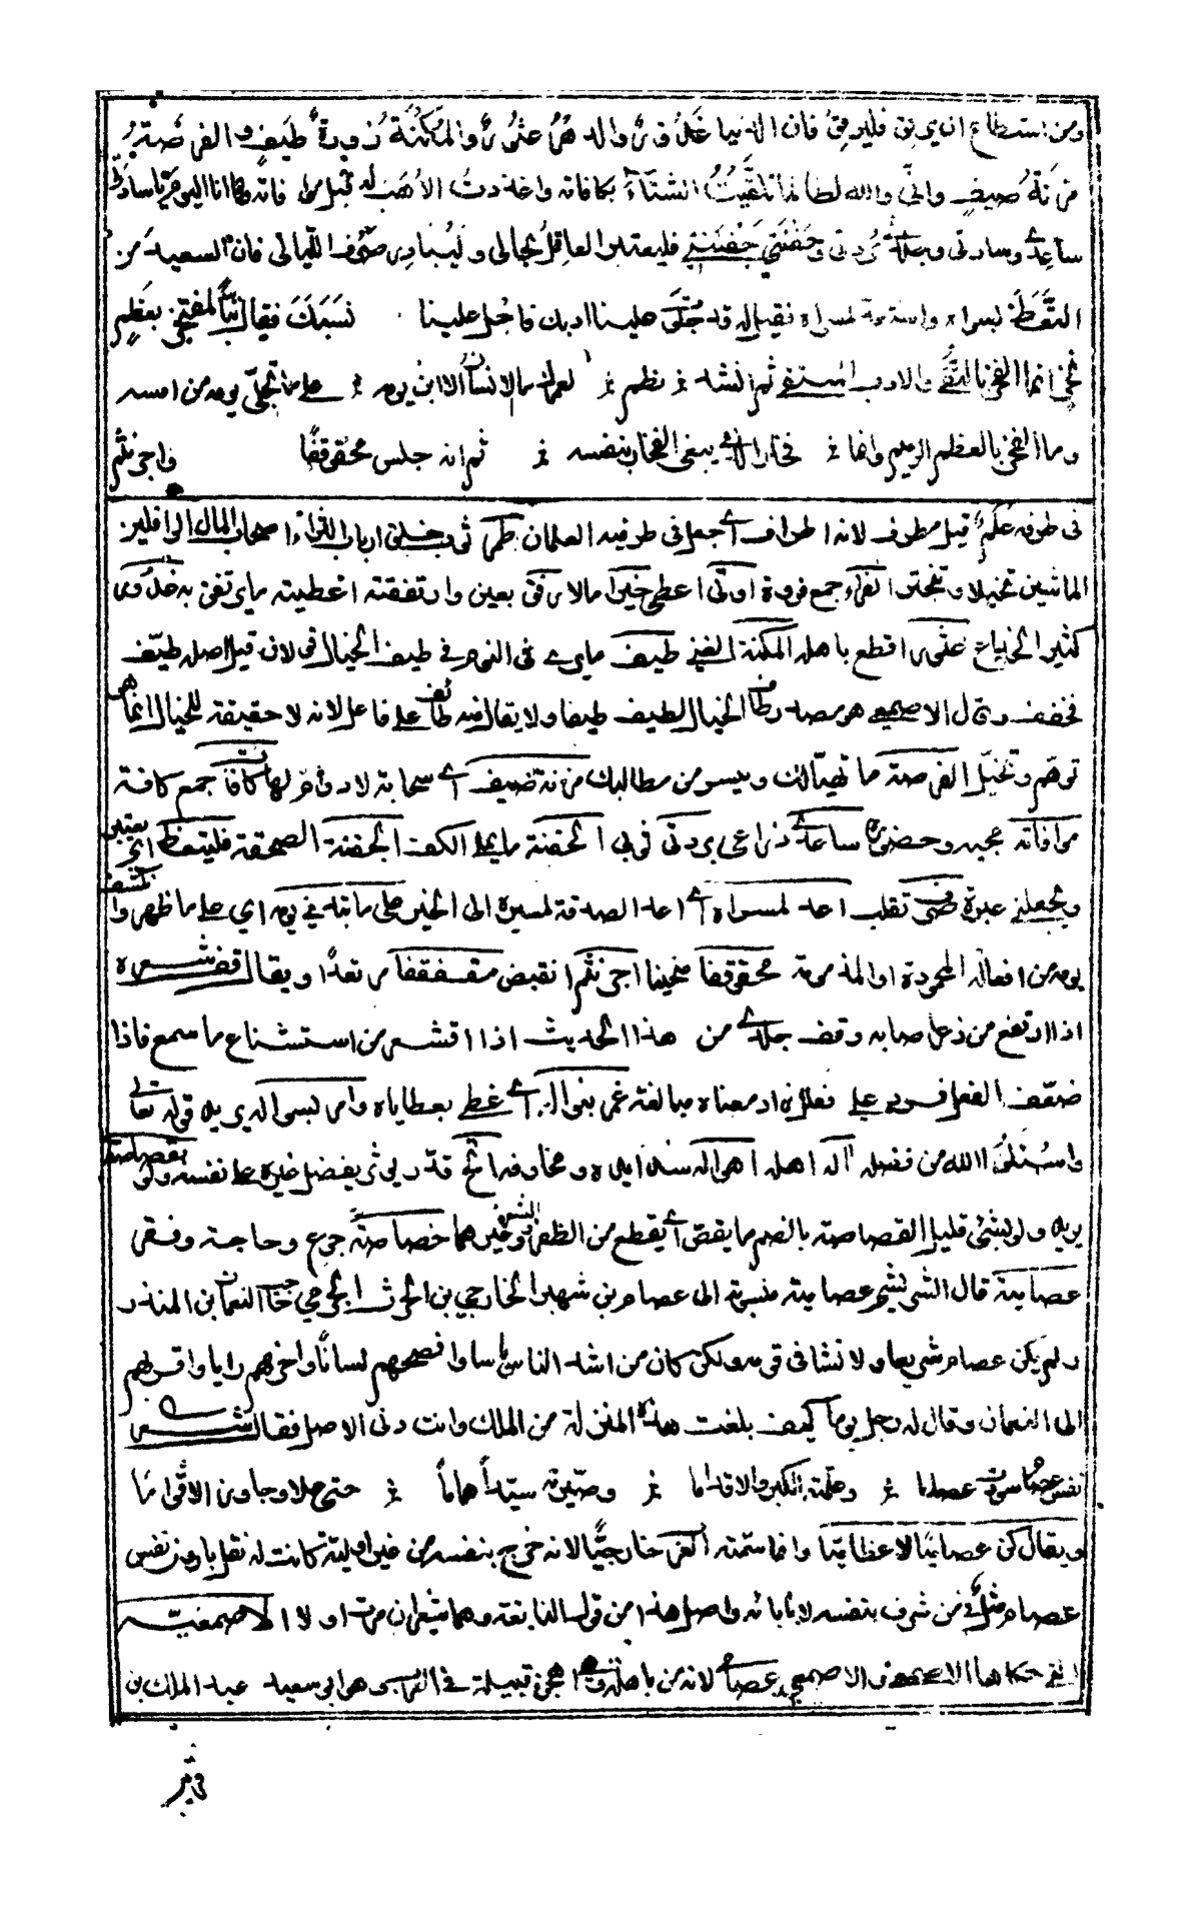 ومن استطاع ان يرفق فليرفق فان الدنيا غدور والدهر عثور والمكنة زورة طيف والفرصة
مزنة صيف واني والله لطالما تلقيت الشتاء بكافاته واعددت الاهب له قبل موافاته وها انا اليوم يا سادتي
ساعدي وسادتي وجلدتي بردتي وحفنتي جفنتي فليعتبر العاقل بحالي وليبادر صرف الليالي فان السعيد من
اتعظ بسواه واستعد لمسراه فقيل له قد جلوت علينا ادبك فاجل علينا نسبك فقال تبا لمفتخر بعظم
نخر انما الفخر بالتقى والادب المنتقى ثم انشد نظم لعمرك ما الانسان الا ابن يومه على ما تجلى يومه لا ابن امسه
وما الفخر بالعظم الرميم وانما فخار الذي يبغي الفخار بنفسه ثم انه جلس محقوقفا واجرنثم
في طرفه علم قيل مطرف لانه اطراف اي جعل في طرفيه العلمان طمر ثوب خلق ارباب الثراء اصحاب المال الرافلين
الماشين تخيلا وتبخترا الفراء جمع فروة اوتي اعطي خيرا مالا يرفق يعين وارتفقته اعطيته ما يرتفق به
كثير الخداع عثور اقطع باهله المكنة الغنى طيف ما يرى في النوم وفي طيف الخيال قولان قيل اصله طيّف
فخفف وقال الاصمعي هو مصدر طاف الخيال يطيف طيفا ولا يقال منه طائف على فاعل لانه لا حقيقة للخيال انما هو
توهم وتخيل الفرصة ما تهيأ لك وتيسر من مطالبك مزنة صيف اي سحابة لا دوام لها كافات جمع كافة
موافاته مجيه وحضوره ساعدي ذراعي بردتي ثوبي الحفنة ما يملأ الكف الجفنة الصحفة فليتعظ اي يعتبر
ويجعلني عبرة صرف تقلب اعد لمسراه اي اعد الصدقة لمسيره الى الخير على ما تجلى في يومه اي على ما ظهر وانكشف
يومه من افعاله المحمودة او المذمومة محقوقفا منحنيا اجرنثم انقبض مقفقفا مرتعدا ويقال قف شعره
اذا ارتفع من ذعر اصابه وقف جلدي من هذا الحديث اذا اقشعر من استشناع ما سمع فاذا
ضعّف الفعل فهو على فعلل زاد معناه مبالغة غمر بنواله اي غطى بعطاياه وامر بسؤاله يريد قوله تعالى
واسئلوا الله من فضله آله اهله اهواله شدايده ومخاوفه اتح قدر لي يؤثر يفضل غيره على نفسه ولو بقصاصة
يريد ولو بشيء قليل القصاصة بالضم ما يقص اي يقطع من الظفر والشعر وغيرهما خصاصة جوع وحاجة وفقر
عصامية قال الشريشي عصامية منسوبة الى عصام بن شهبر الخارجي بن الحرث الجرمي حاجب النعمان بن المنذر
ولم يكن عصام شريفا ولا نشأ في قومه ولكن كان من اشد الناس باسا وافصحهم لسانا واحزمهم رايا واقربهم
الى النعمان وقال له رجل يوما كيف بلغت هذه المنزلة من الملك وانت دني الاصل فقال شعر
نفس عصام سودت عصاما وعلمته الكر والاقداما وصيرته سيدا هماما حتى علا وجاوز الاقواما
ويقال كن عصاميا لا عظاميا وانما سمته العرب خارجيا لانه خرج بنفسه من غير اولية كانت له نقل بارون نفس
عصام مثل في من شرف بنفسه لا بآبائه واصل هذا من قول النابغة وهما شعران مرت اولا الاصمعية
التي حكاها الاصمعي والاصمعي عصامي لانه من باهلة وهي اهجن قبيلة في العرب وهو ابو سعيد عبد الملك بن
قريب